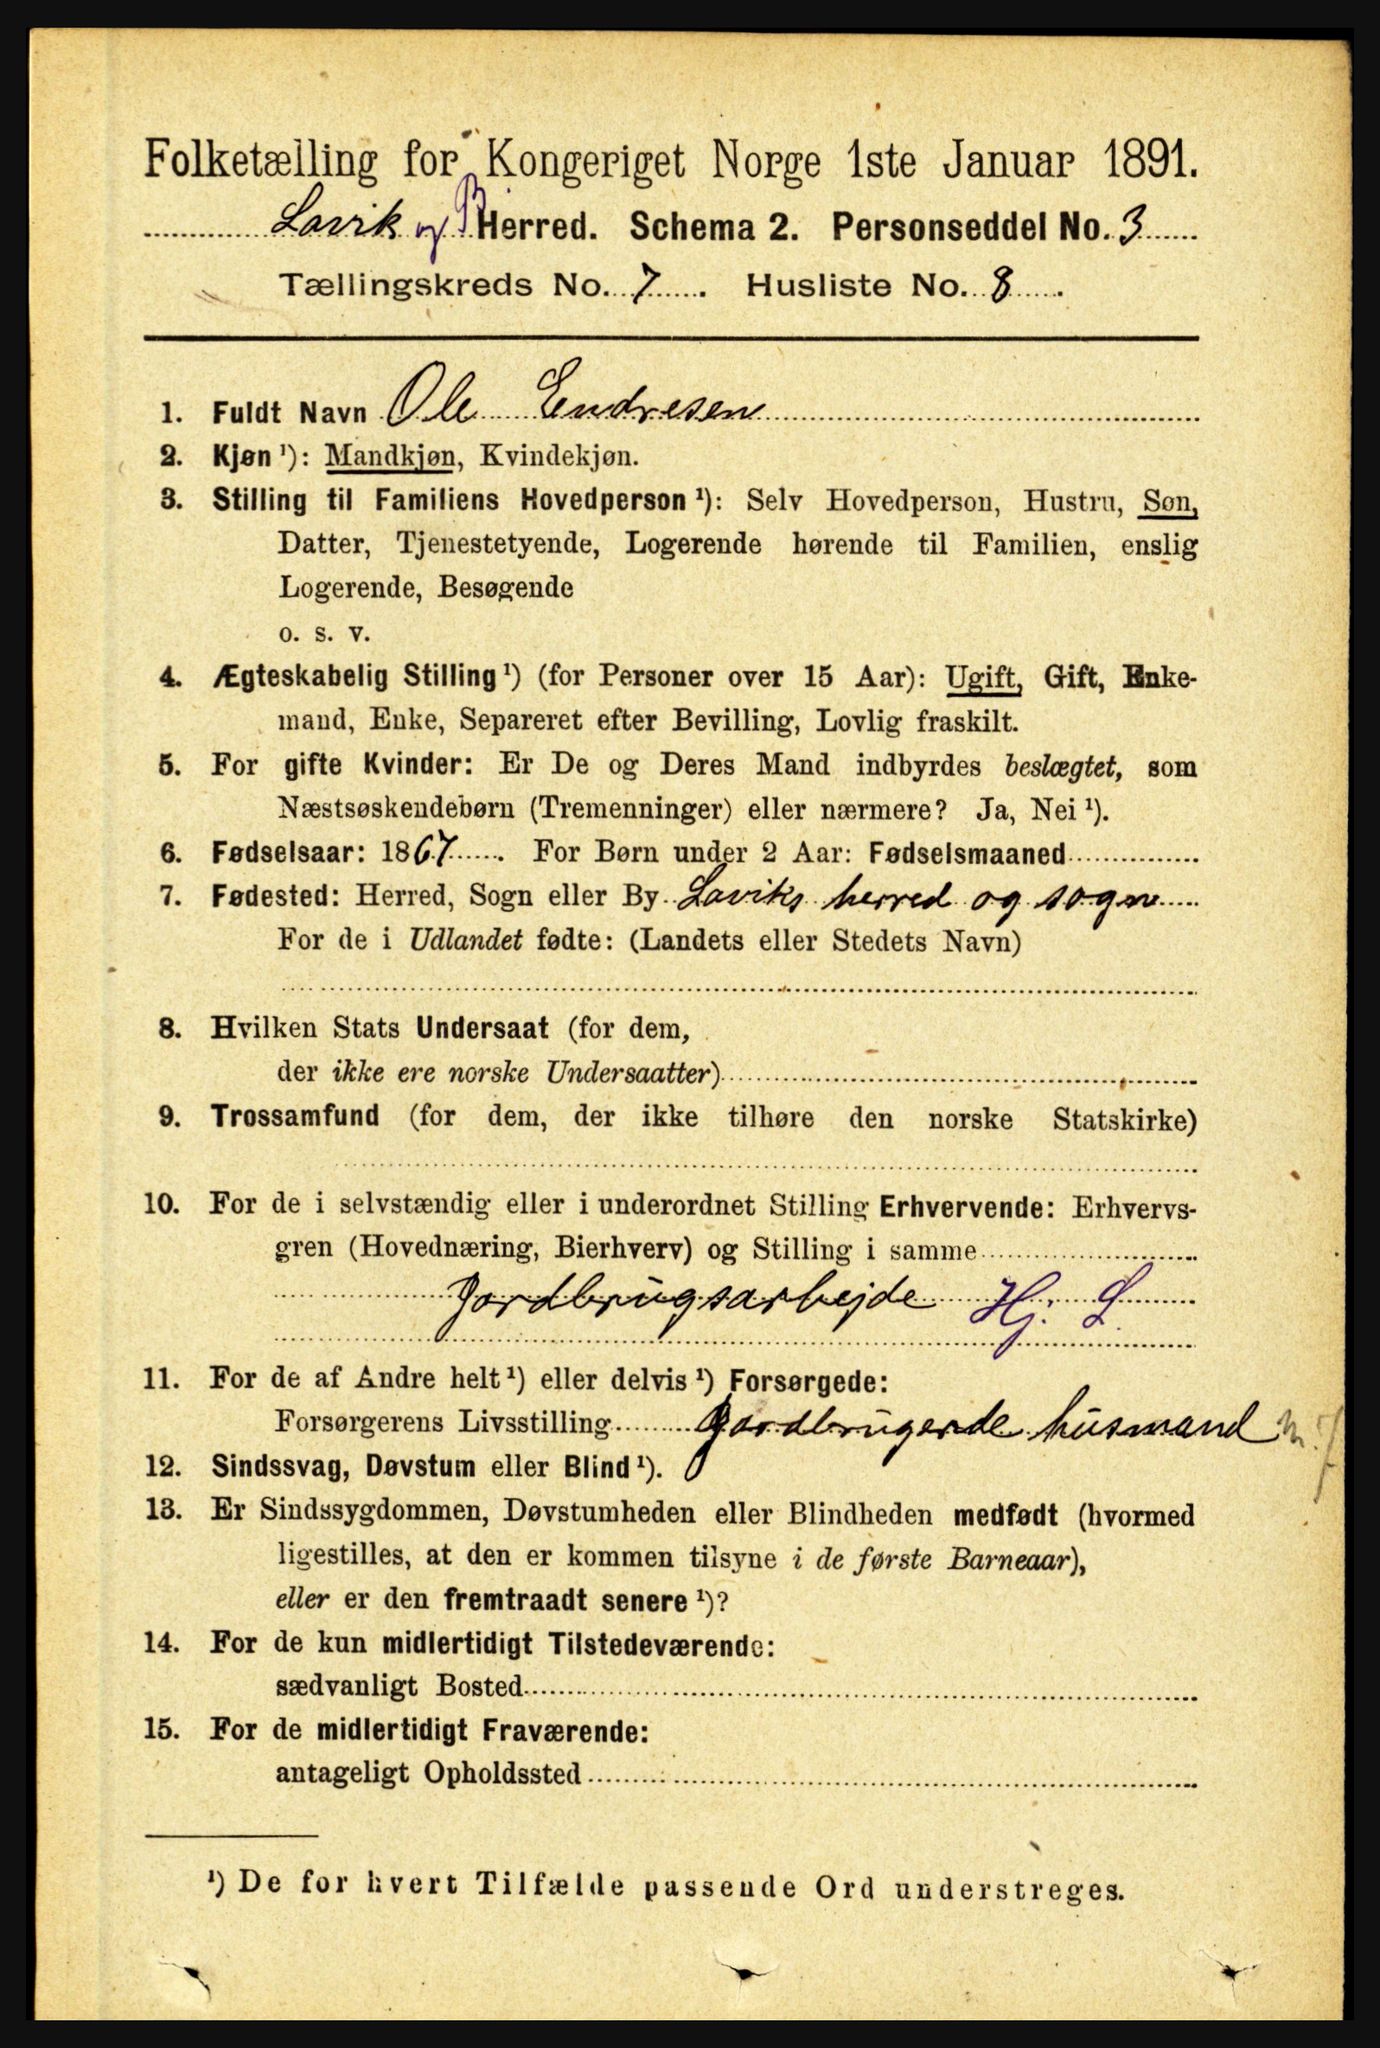 Folketælling for Kongeriget Norge 1ste Januar 1891.
Lavik og B Herred. Schema 2. Personseddel No. 3
Tællingskreds No. 7. Husliste No. 8.
1. Fuldt Navn Ole Endresen
2. Kjøn ¹): Mandkjøn, Kvindekjøn.
3. Stilling til Familiens Hovedperson ¹): Selv Hovedperson, Hustru, Søn,
Datter, Tjenestetyende, Logerende hørende til Familien, enslig
Logerende, Besøgende
o. s. v.
4. Ægteskabelig Stilling ¹) (for Personer over 15 Aar): Ugift, Gift, Enke-
mand, Enke, Separeret efter Bevilling, Lovlig fraskilt.
5. For gifte Kvinder: Er De og Deres Mand indbyrdes beslægtet, som
Næstsøskendebørn (Tremenninger) eller nærmere? Ja, Nei ¹).
6. Fødselsaar: 1867. For Børn under 2 Aar: Fødselsmaaned
7. Fødested: Herred, Sogn eller By Laviks herred og sogn
For de i Udlandet fødte: (Landets eller Stedets Navn)
8. Hvilken Stats Undersaat (for dem,
der ikke ere norske Undersaatter)
9. Trossamfund (for dem, der ikke tilhøre den norske Statskirke)
10. For de i selvstændig eller i underordnet Stilling Erhvervende: Erhvervs-
gren (Hovednæring, Bierhverv) og Stilling i samme
Jordbrugsarbejde Hj. L
11. For de af Andre helt ¹) eller delvis ¹) Forsørgede:
Forsørgerens Livsstilling Jordbrugende husmand m. J
12. Sindssvag, Døvstum eller Blind ¹).
13. Er Sindssygdommen, Døvstumheden eller Blindheden medfødt (hvormed
ligestilles, at den er kommen tilsyne i de første Barneaar),
eller er den fremtraadt senere ¹)?
14. For de kun midlertidigt Tilstedeværende:
sædvanligt Bosted
15. For de midlertidigt Fraværende:
antageligt Opholdssted
¹) De for hvert Tilfælde passende Ord understreges.